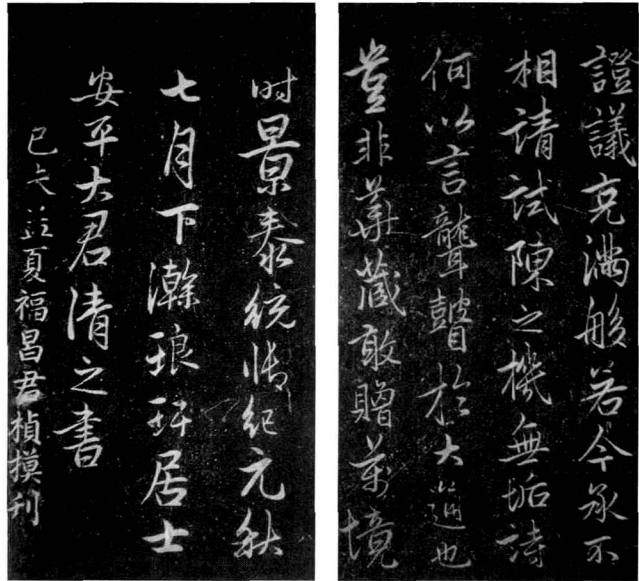 證議克滿般若今承不
相請試陳之機無垢詩
何以言聾瞽於大道也
豈非華藏敢贈萬境
时景泰統紀元秋
七月下澣琅玡居士
安平大君清之書
夏福昌君楨摸刊